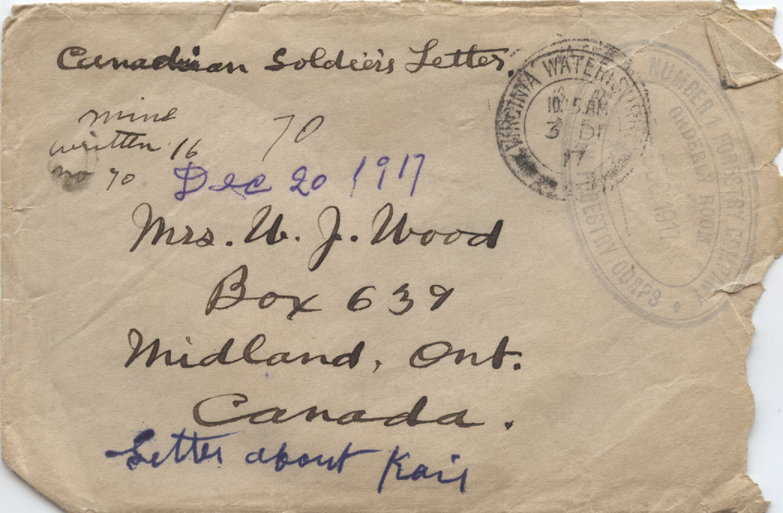 Canadian Soldier's Letter.
mine
written 16
no 70
70
Dec 20 1917
Mrs. W. J. Wood
Box 639
Midland, Ont.
Canada.
Letter about
VIRGINIA WATER
10.15 AM
3 DE
17
NUMBER 1 FORESTRY COMPANY
ORDERLY ROOM
1917
FORESTRY CORPS